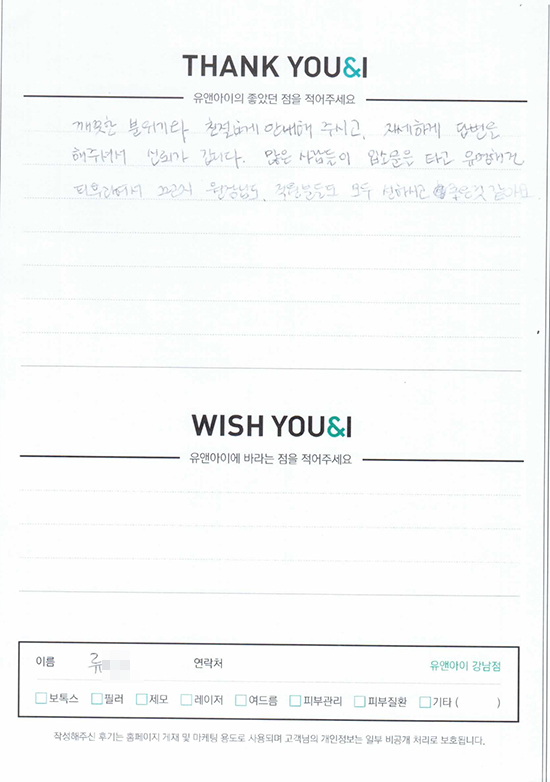 THANK YOU&I
유앤아이의 좋았던 점을 적어주세요
깨끗한 분위기와 친절하게 안내해 주시고, 자세하게 답변을
해주셔서 신뢰가 갑니다. 많은 사람들이 입소문을 타고 유명해진
피부과여서 그런지 원장님도, 직원분들도 모두 선하시고 좋은것 같아요.
WISH YOU&I
유앤아이에 바라는 점을 적어주세요
이름 류 연락처 유앤아이 강남점
보톡스 필러 제모 레이저 여드름 피부관리 피부질환 기타 ( )
작성해주신 후기는 홈페이지 게재 및 마케팅 용도로 사용되며 고객님의 개인정보는 일부 비공개 처리로 보호됩니다.